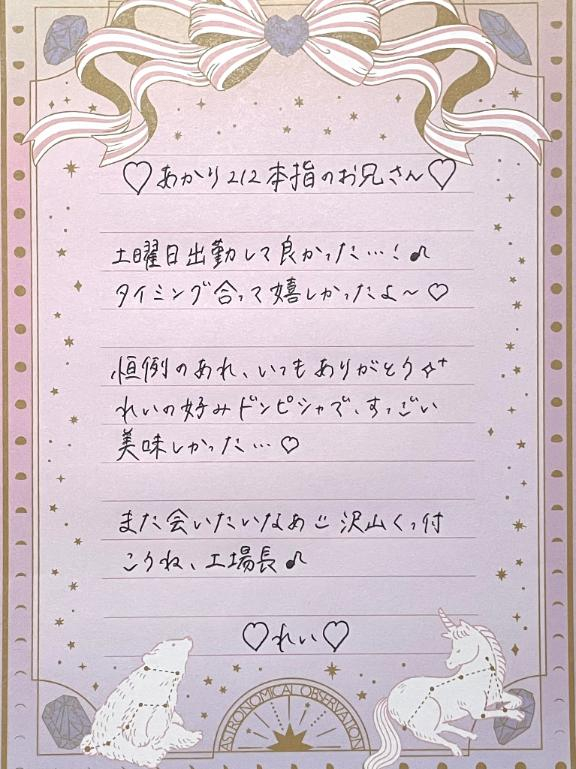 ♡あかり212本指のお兄さん♡
土曜日出勤して良かった…！♪
タイミング合って嬉しかったよ～♡
恒例のあれ、いつもありがとう✧⁺
れいの好みドンピシャで、すっごい
美味しかった…♡
また会いたいなあ 沢山くっ付
こうね、工場長♪
♡れい♡
ASTRONOMICAL OBSERVATION